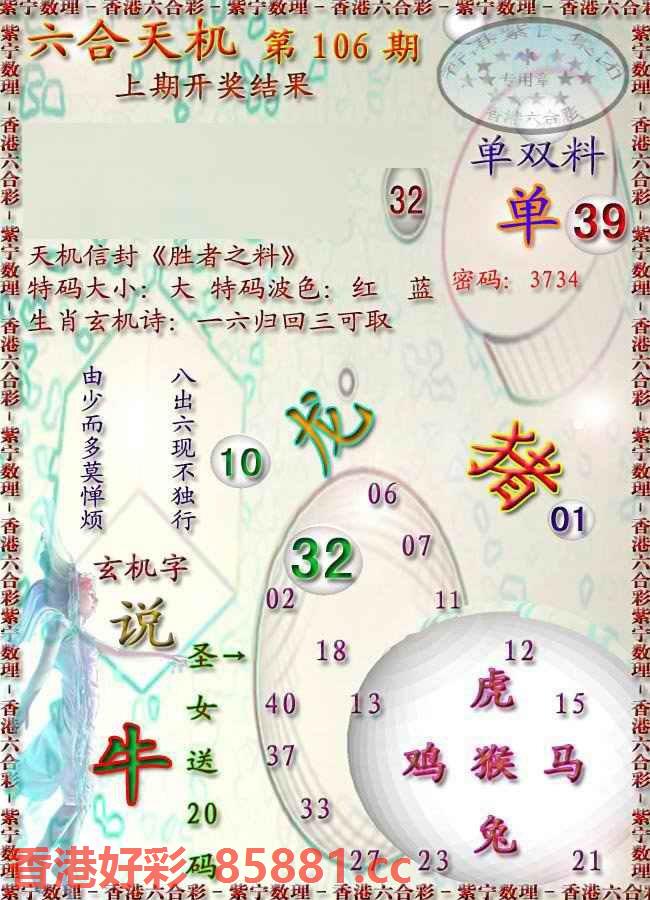 紫宁数理－香港六合彩－紫宁数理－香港六合彩－紫宁数理－香港六合彩
六合天机 第 106 期
上期开奖结果
香港紫民集团
专用章
香港六合彩
单双料
单 39
32
天机信封《胜者之料》
特码大小：大 特码波色：红 蓝
密码：3734
生肖玄机诗：一六归回三可取
八出六现不独行
由少而多莫惮烦
10
龙
猪
01
06
32
07
玄机字
说
02
11
圣女送20码
→
18
12
虎
牛
40
13
15
37
鸡 猴 马
33
兔
27
23
21
香港好彩 85881.cc
紫宁数理－香港六合彩－紫宁数理－香港六合彩－紫宁数理－香港六合彩